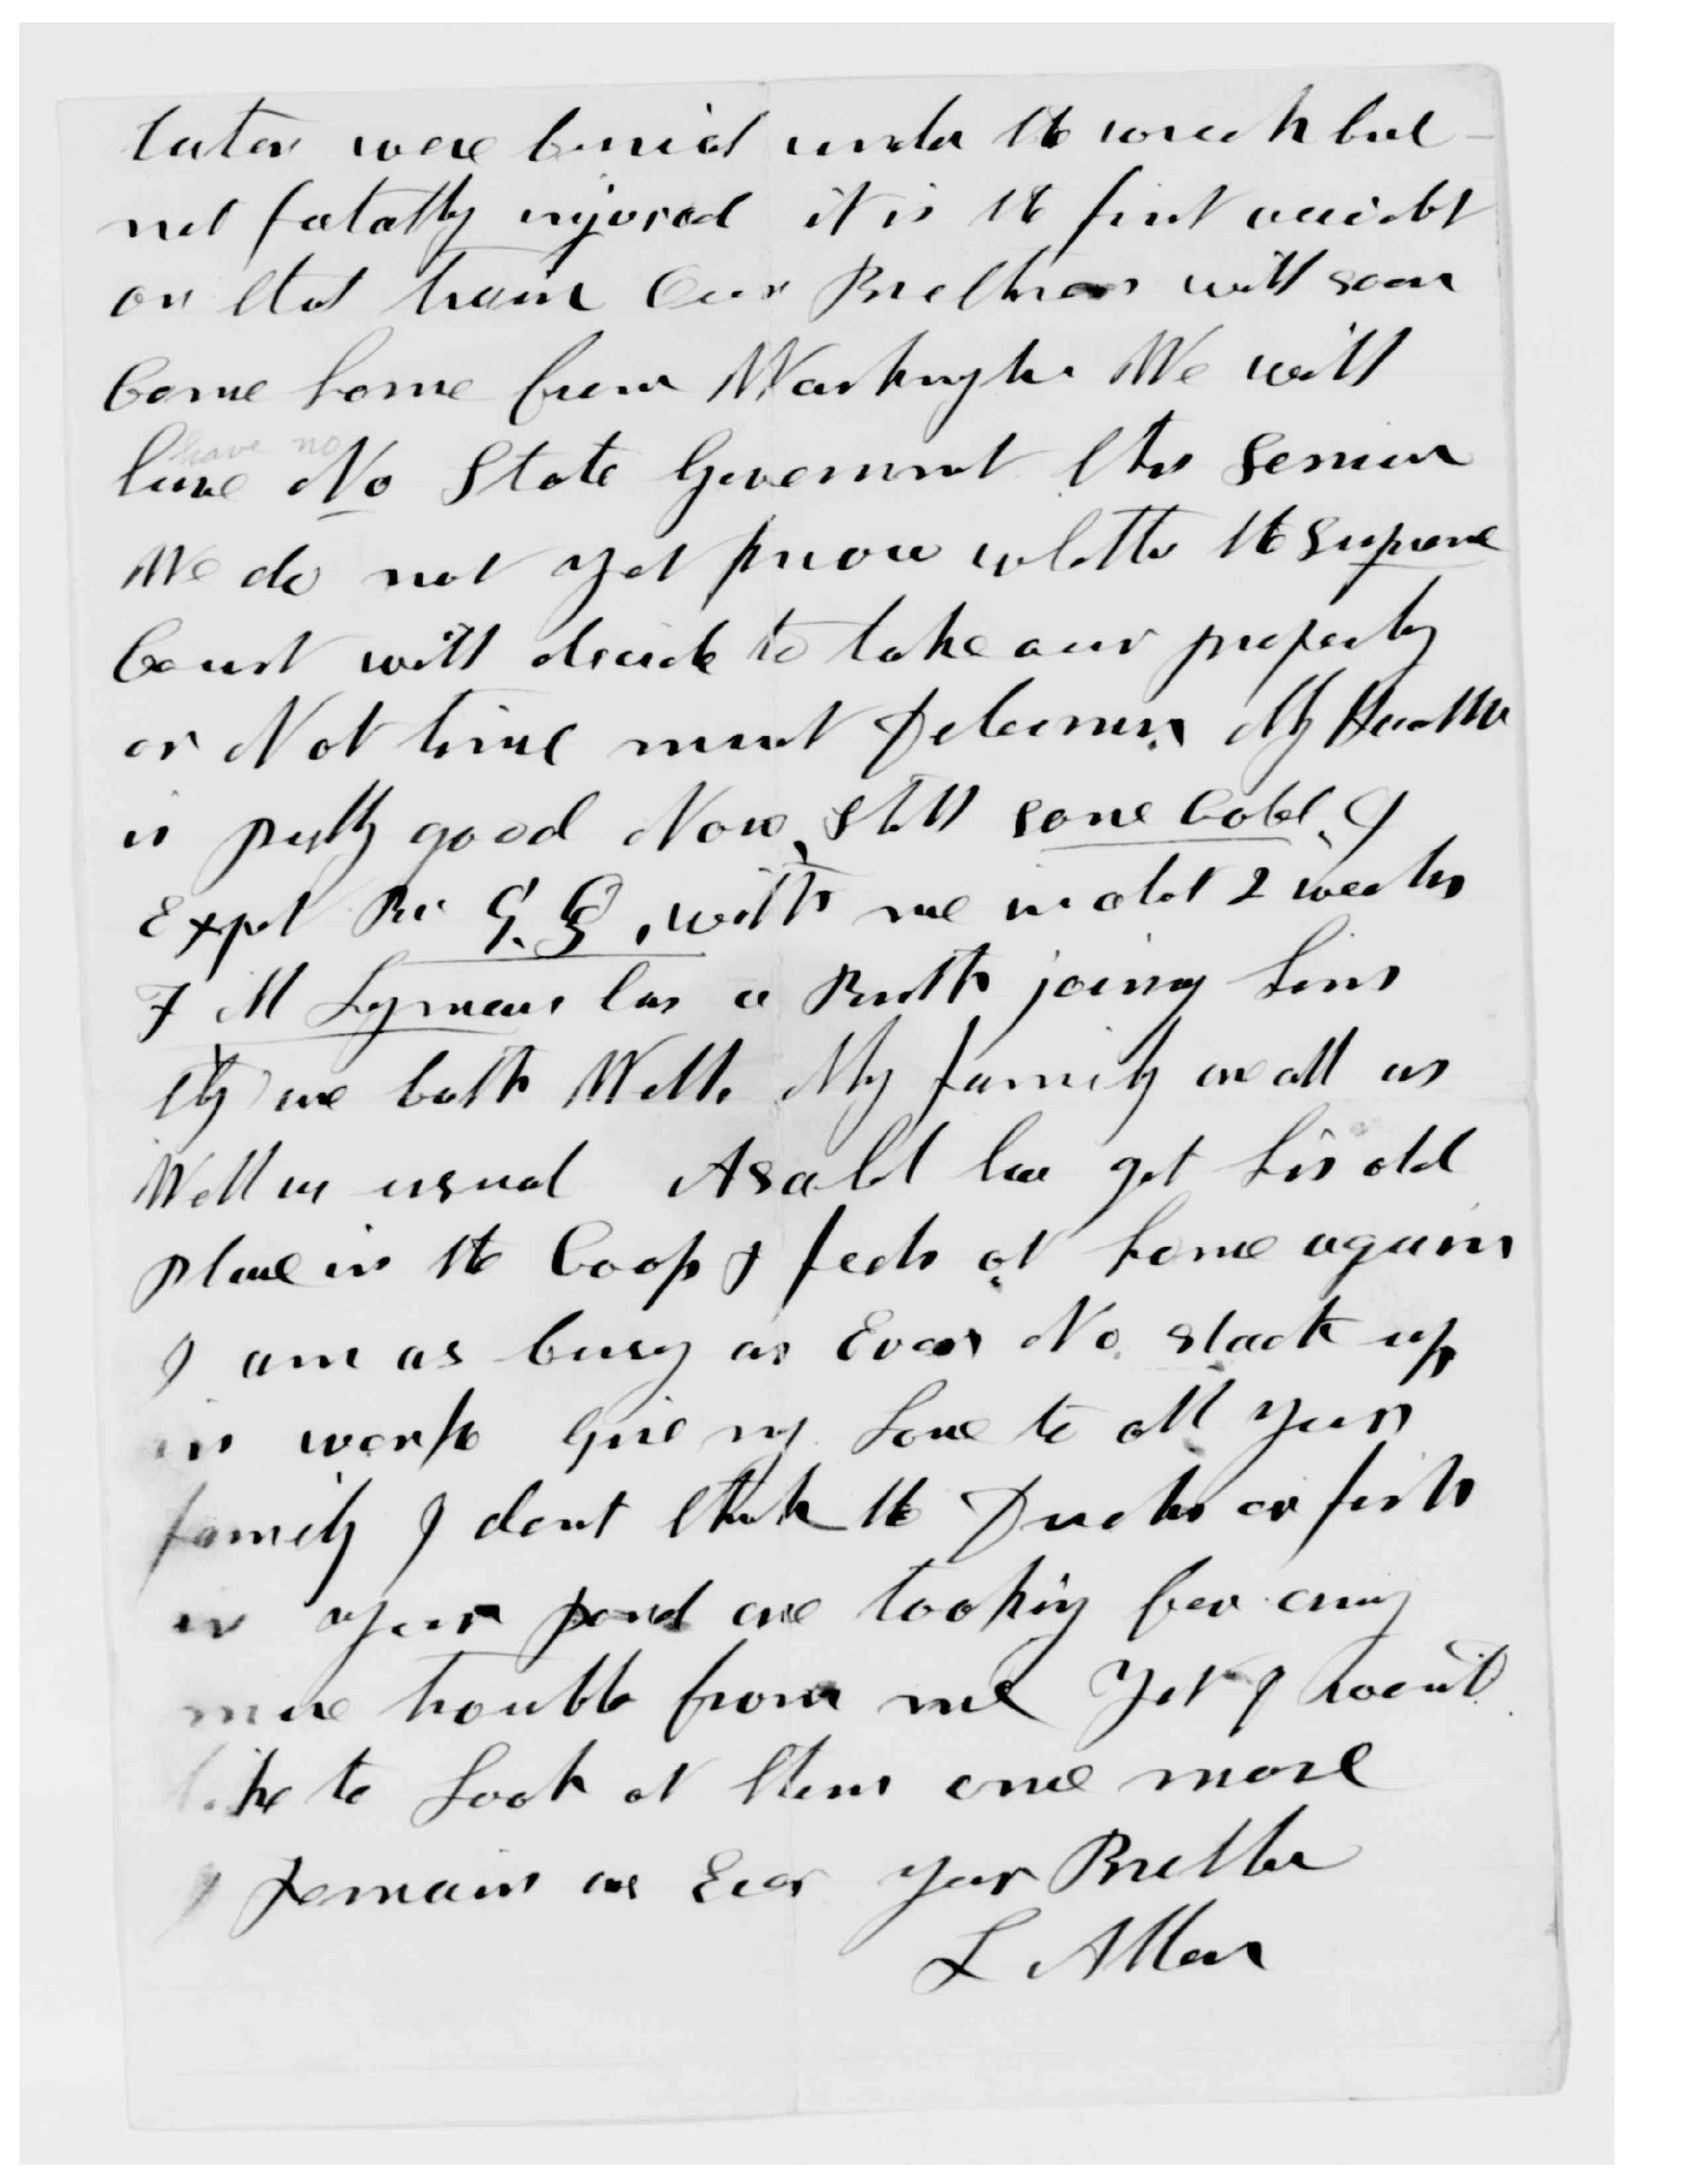 were buried under the wreck but
not fatally injured it is the first accidet
on that train Our Brethren will soon
Come home from Washington We will
have no
have No State Goverment this Session
We do not yet know whether the Supreme
Court will decide to take our property
or Not time must Determin My Health
is pretty good Now, Still some Cold. I
Expet Br G. Q. with me in abot 2 weeks
F M Lyman has a Birth joining his
they are both Well. My family are all as
Well as usual Asahel has got his old
place in the Coop & feels at home again
I am as busy as Ever No slack up
in work Give my Love to all your
family I dont think the Ducks or fish
in your pond are looking for any
more trouble from me Yet I would
like to Look at them once more
I Remain as Ever your Brother
L Allen